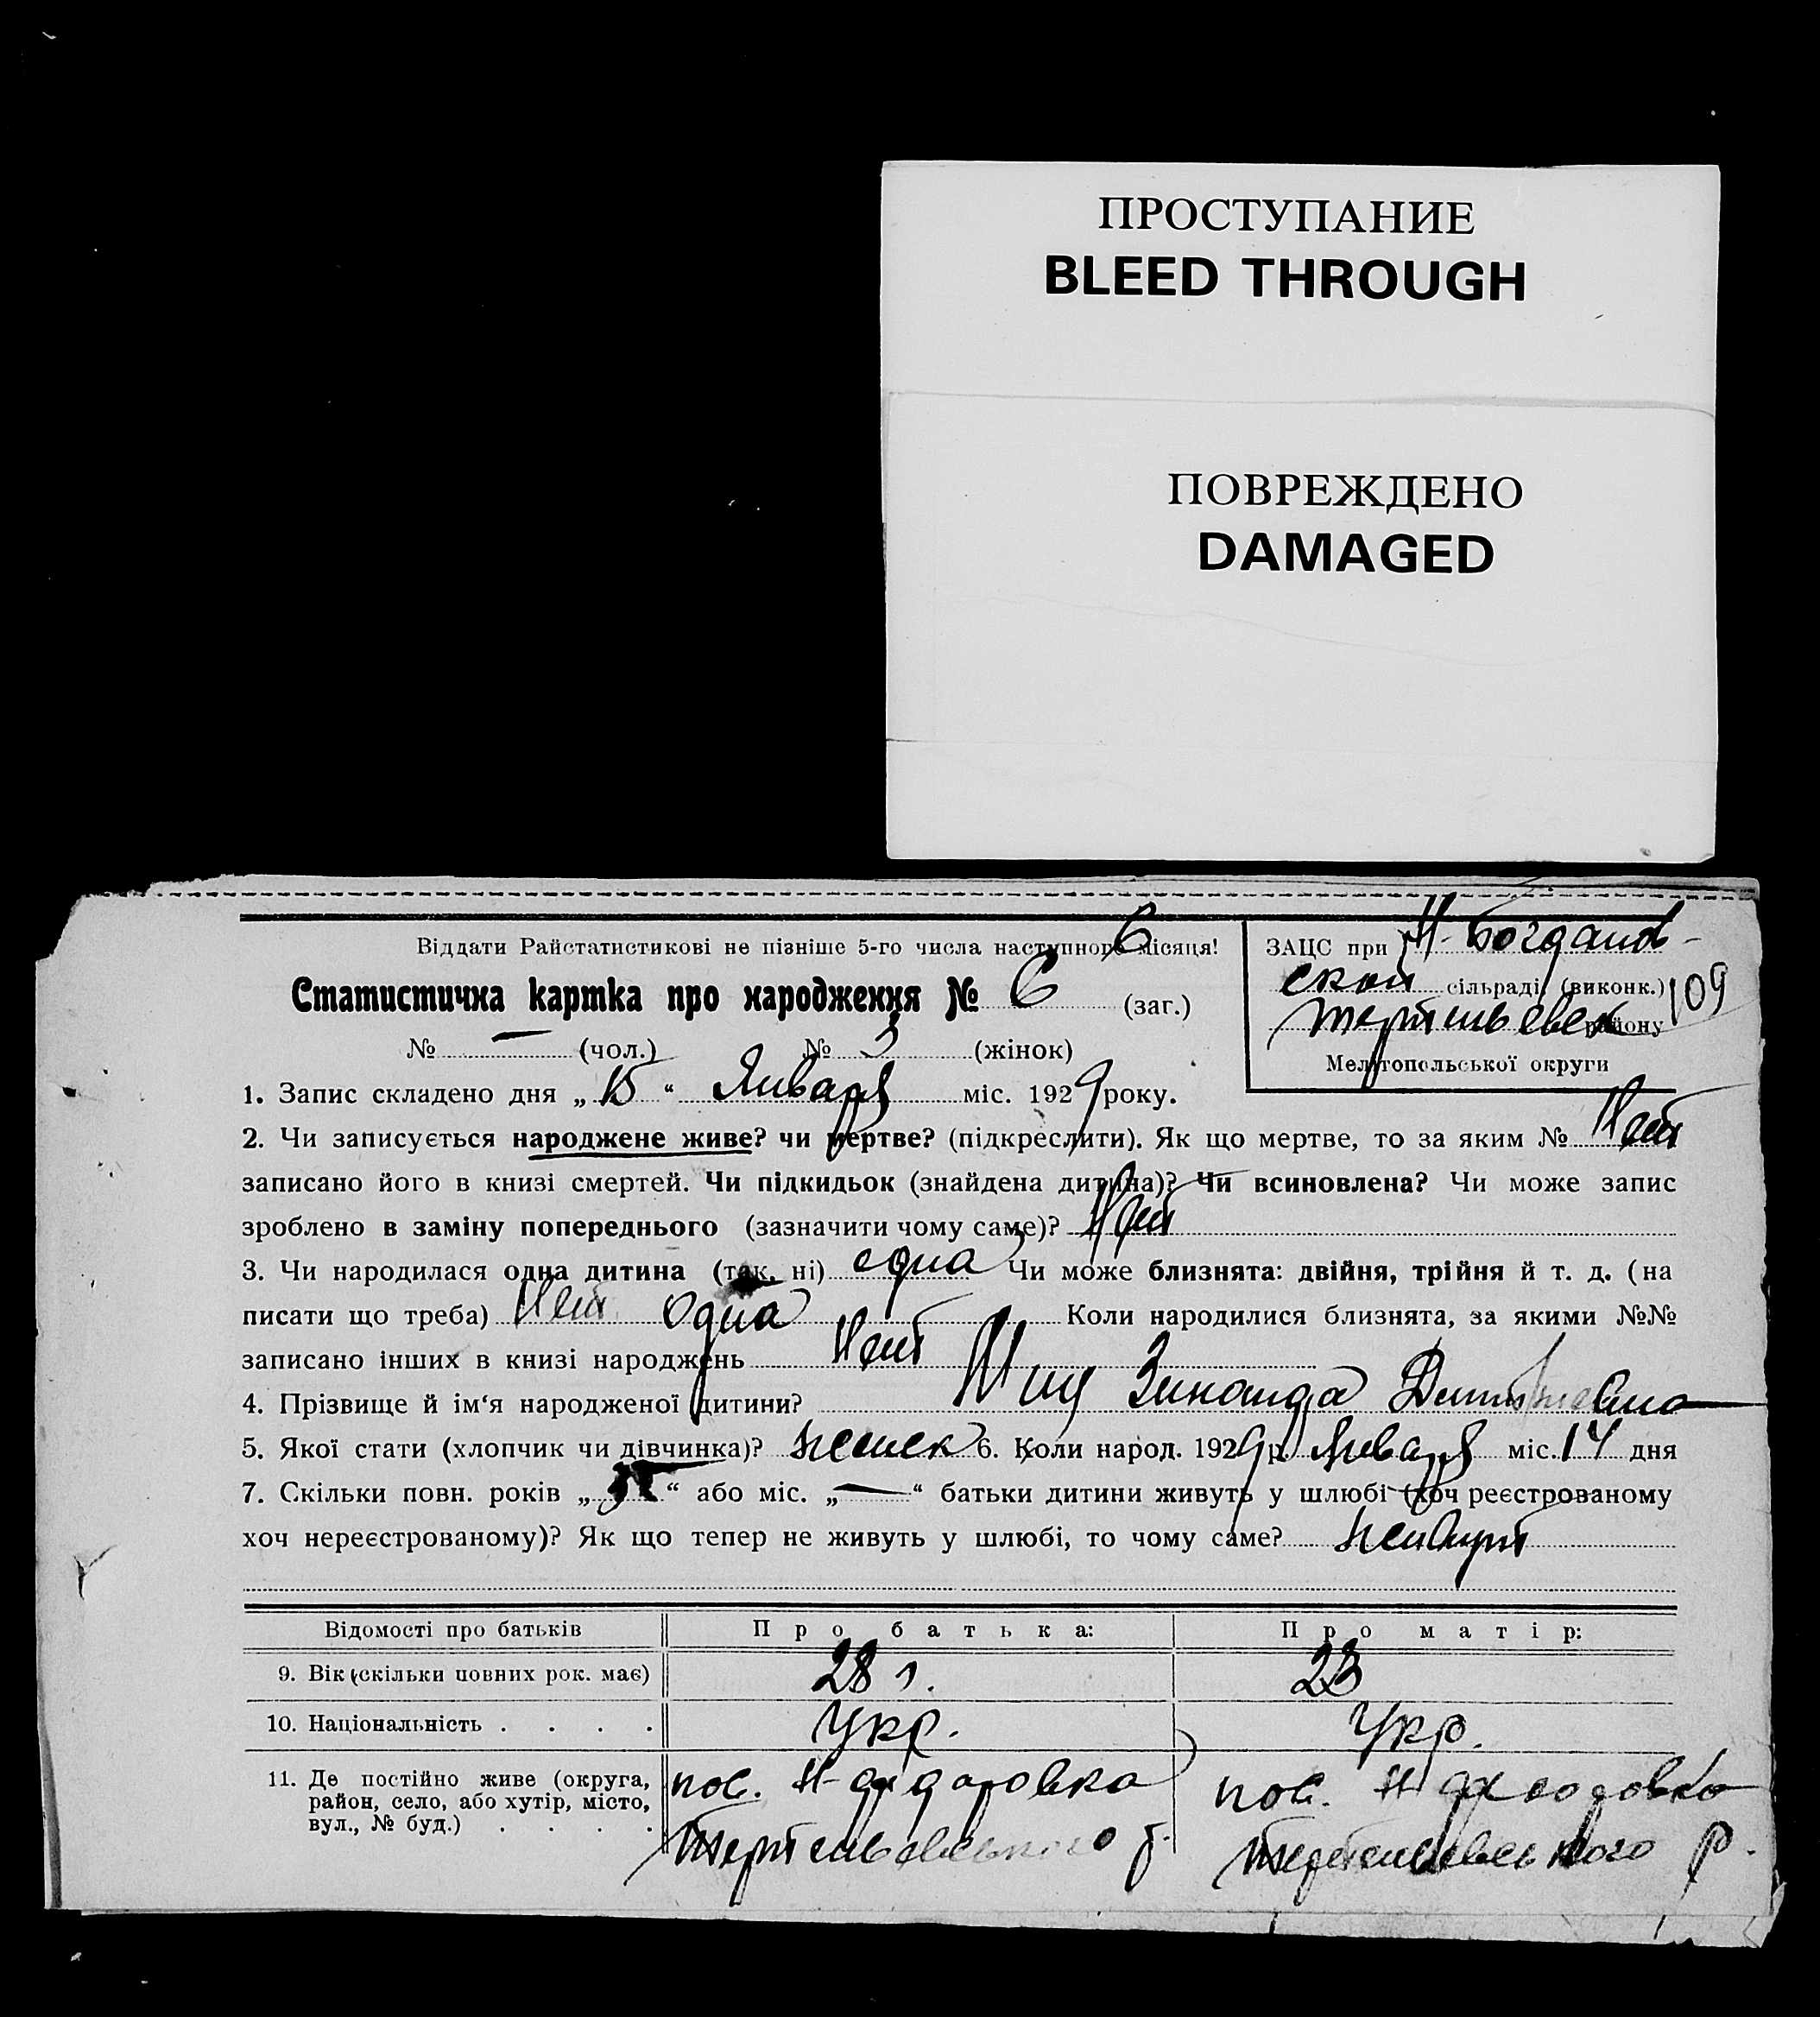 ПРОСТУПАНИЕ
BLEED THROUGH
ПОВРЕЖДЕНО
DAMAGED
6
Віддати Райстатистикові не пізніше 5-го числа наступного місяця!
Статистична картка про народження № 6 (заг.)
№ — (чол.) № 3 (жінок)
ЗАЦС при Н-Богданов-
ской сільраді (виконк.)
району
Мелітопольської округи
109
1. Запис складено дня „15“ Января міс. 1929 року.
2. Чи записується народжене живе? чи мертве? (підкреслити). Як що мертве, то за яким № Нет
записано його в книзі смертей. Чи підкидьок (знайдена дитина)? Чи всиновлена? Чи може запис
зроблено в заміну попереднього (зазначити чому саме)? Нет
3. Чи народилася одна дитина (так, ні) одна Чи може близнята: двійня, трійня й т. д. (на
писати що треба) Нет одна Коли народилися близнята, за якими №№
записано інших в книзі народжень Нет
4. Прізвище й ім‘я народженої дитини? Зинаида
5. Якої стати (хлопчик чи дівчинка)? женск 6. Коли народ. 1929 р. Января міс. 14 дня
7. Скільки повн. років „ “ або міс. „—“ батьки дитини живуть у шлюбі (хоч реєстрованому
хоч нереєстрованому)? Як що тепер не живуть у шлюбі, то чому саме?
Відомості про батьків Про батька: Про матір:
9. Вік (скільки повних рок. має) 28 л. 23
10. Національність . . . . Укр. Укр.
11. Де постійно живе (округа, пос.
район, село, або хутір, місто, пос.
вул., № буд.) . . . . р.